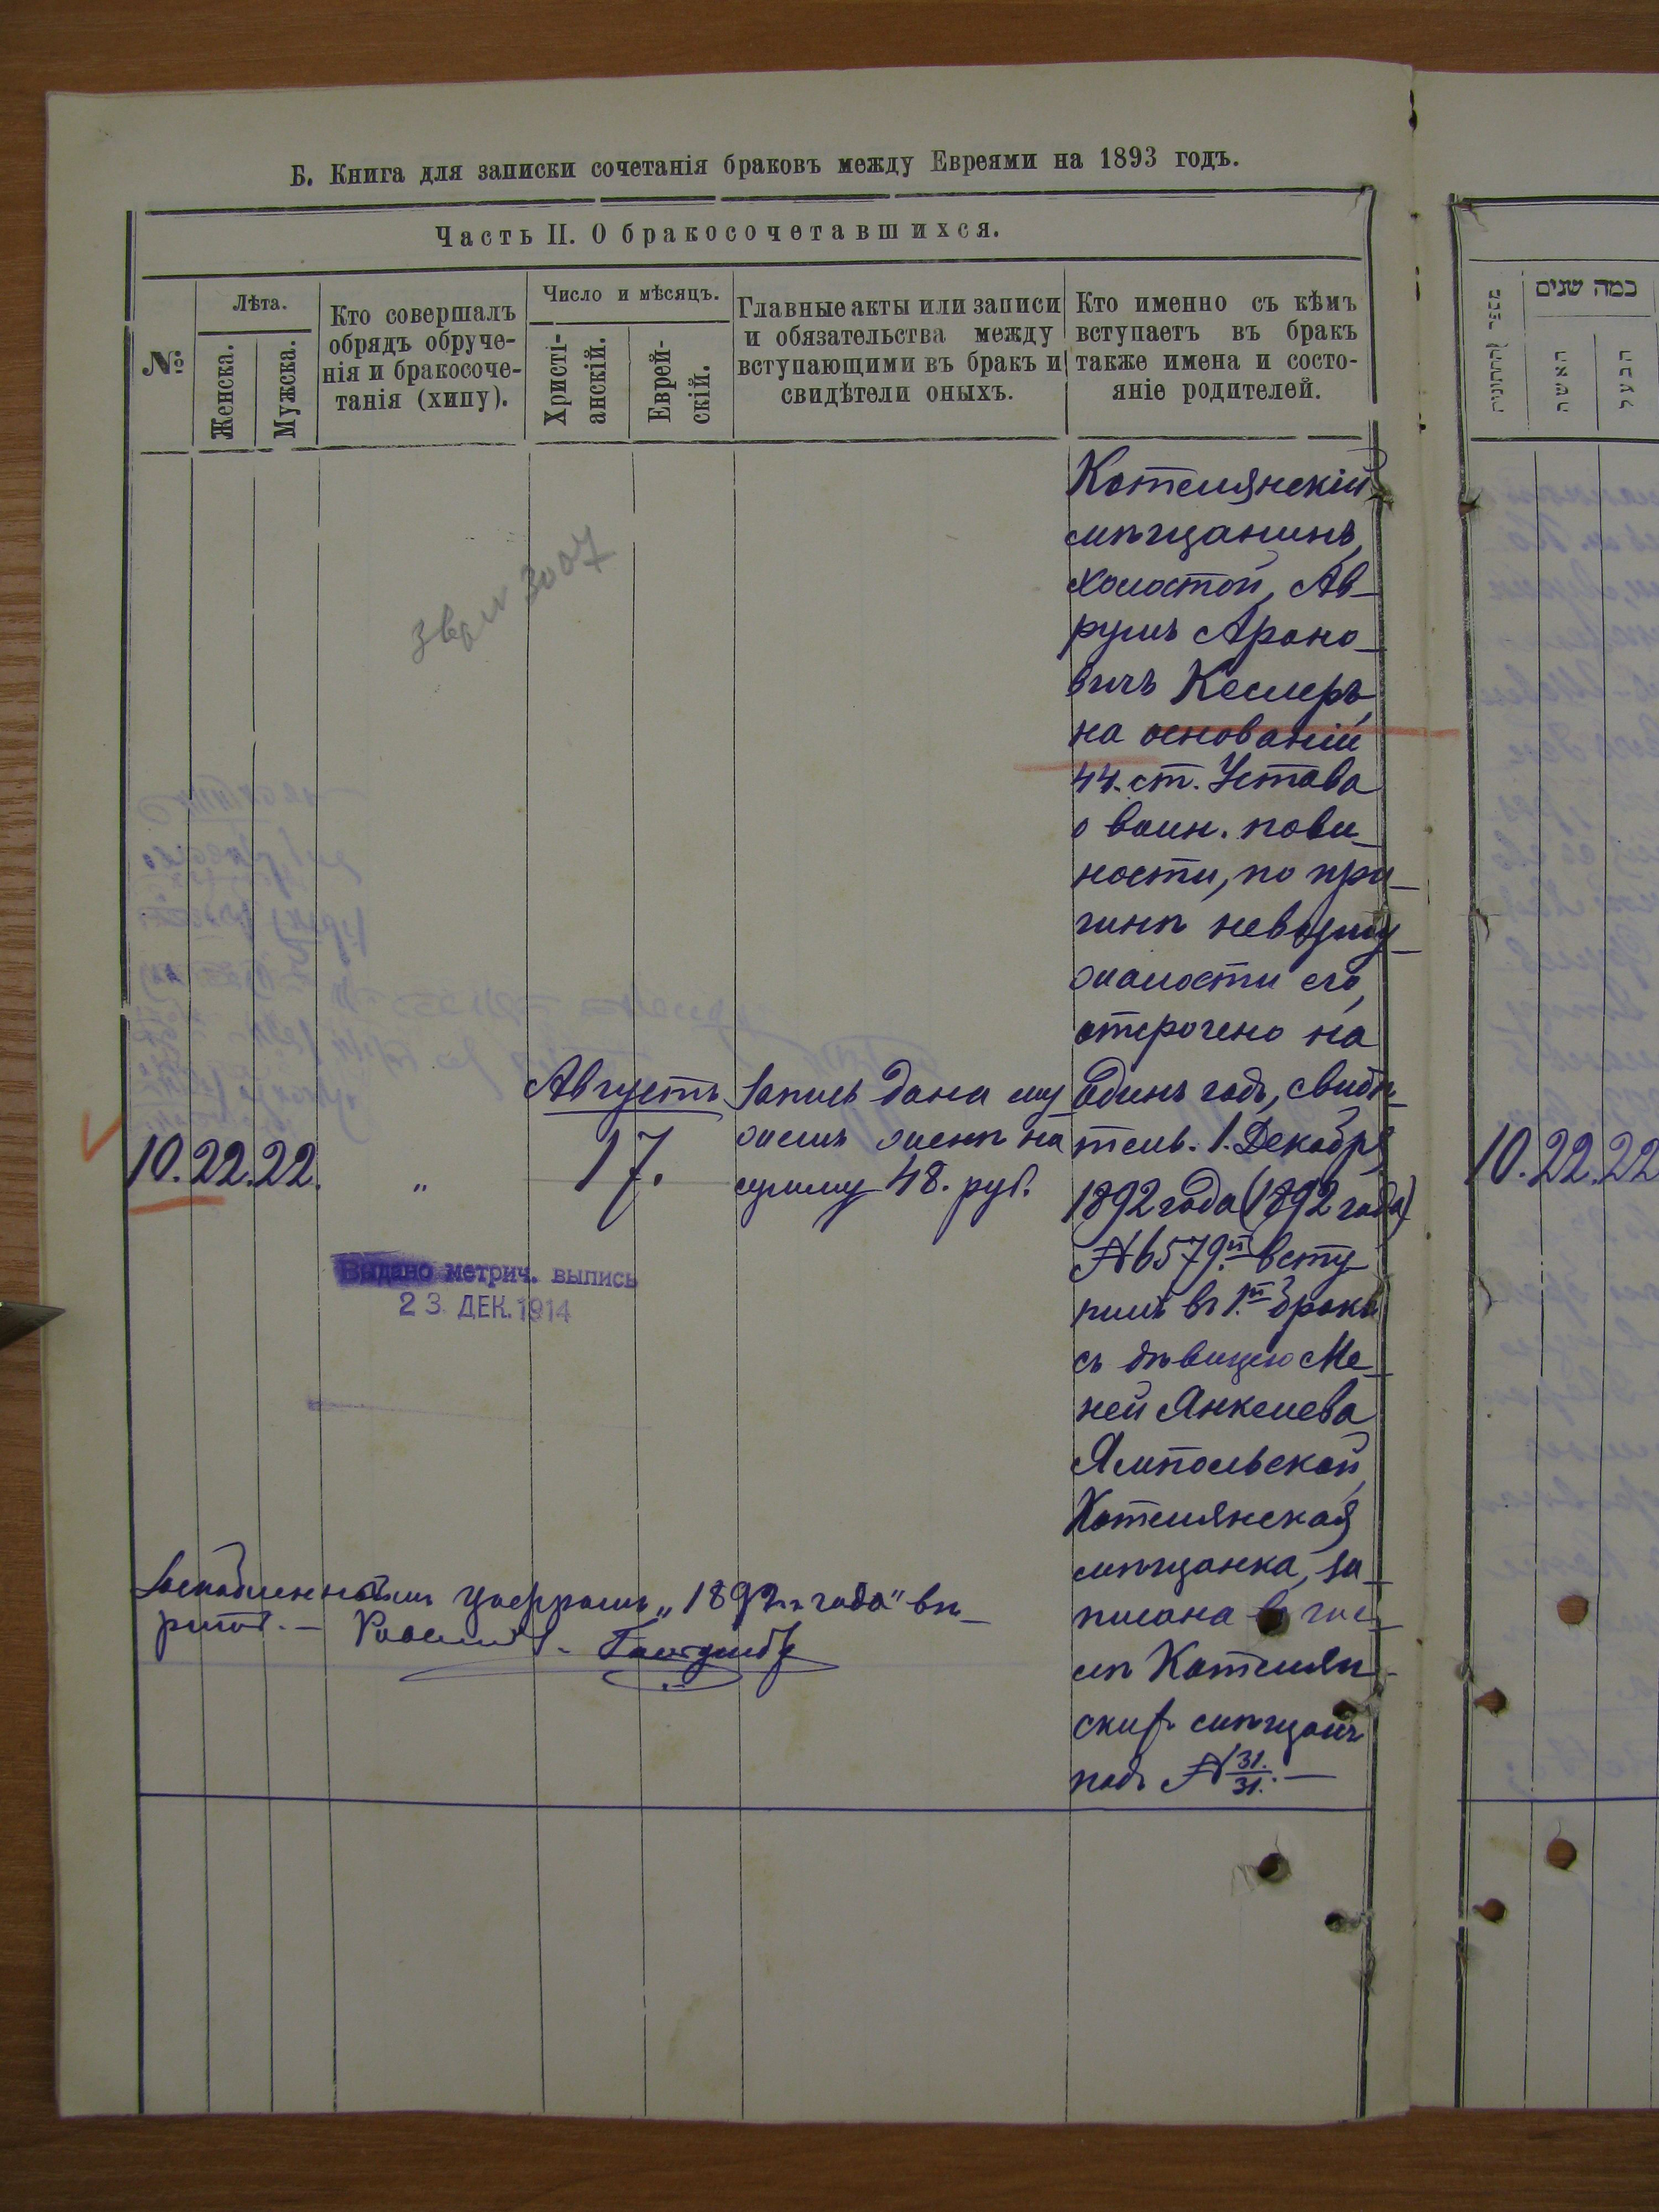 Б. Книга для записки сочетанія браковъ между Евреями на 1893 годъ.
Часть II. О бракосочетавшихся.
№:
Лѣта.
Женска.
Мужска.
Кто совершалъ
обрядъ обруче-
нія и бракосоче-
танія (хипу).
Число и мѣсяцъ.
Христі-
анскій.
Еврей-
скій.
Главные акты или записи
и обязательства между
вступающими въ бракъ и
свидѣтели оныхъ.
Кто именно съ кѣмъ
вступаетъ въ бракъ
также имена и состо-
яніе родителей.
3007
10. 22. 22. „
Августъ
17.
Запись дана му
жемъ женѣ на
сумму 48. руб.
Котелянскій
мѣщанинъ,
холостой, Ав-
румъ Ароно-
вичъ Кеслеръ,
на основаніи
44. ст. Устава
о воин. пови-
ности, по при-
чинѣ невозму-
жалости его,
отсрочено на
одинъ годъ, свидѣ-
тель. 1. Декабря
1892 года (1892 года)
№ 6579.й всту-
пилъ въ 1.й бракъ
съ дѣвицею Ме-
ней Янкелева
Ямпольской,
Котелянская
мѣщанка, за-
писана в чис-
лѣ Котелян-
ских мѣщанъ
подъ № 31./31. —
Выдано метрич. выпись
23 ДЕК. 1914
„1892 года" вѣ-
рить. — Раввинъ
כמה שנים
האשה
הבעל
10. 22. 22